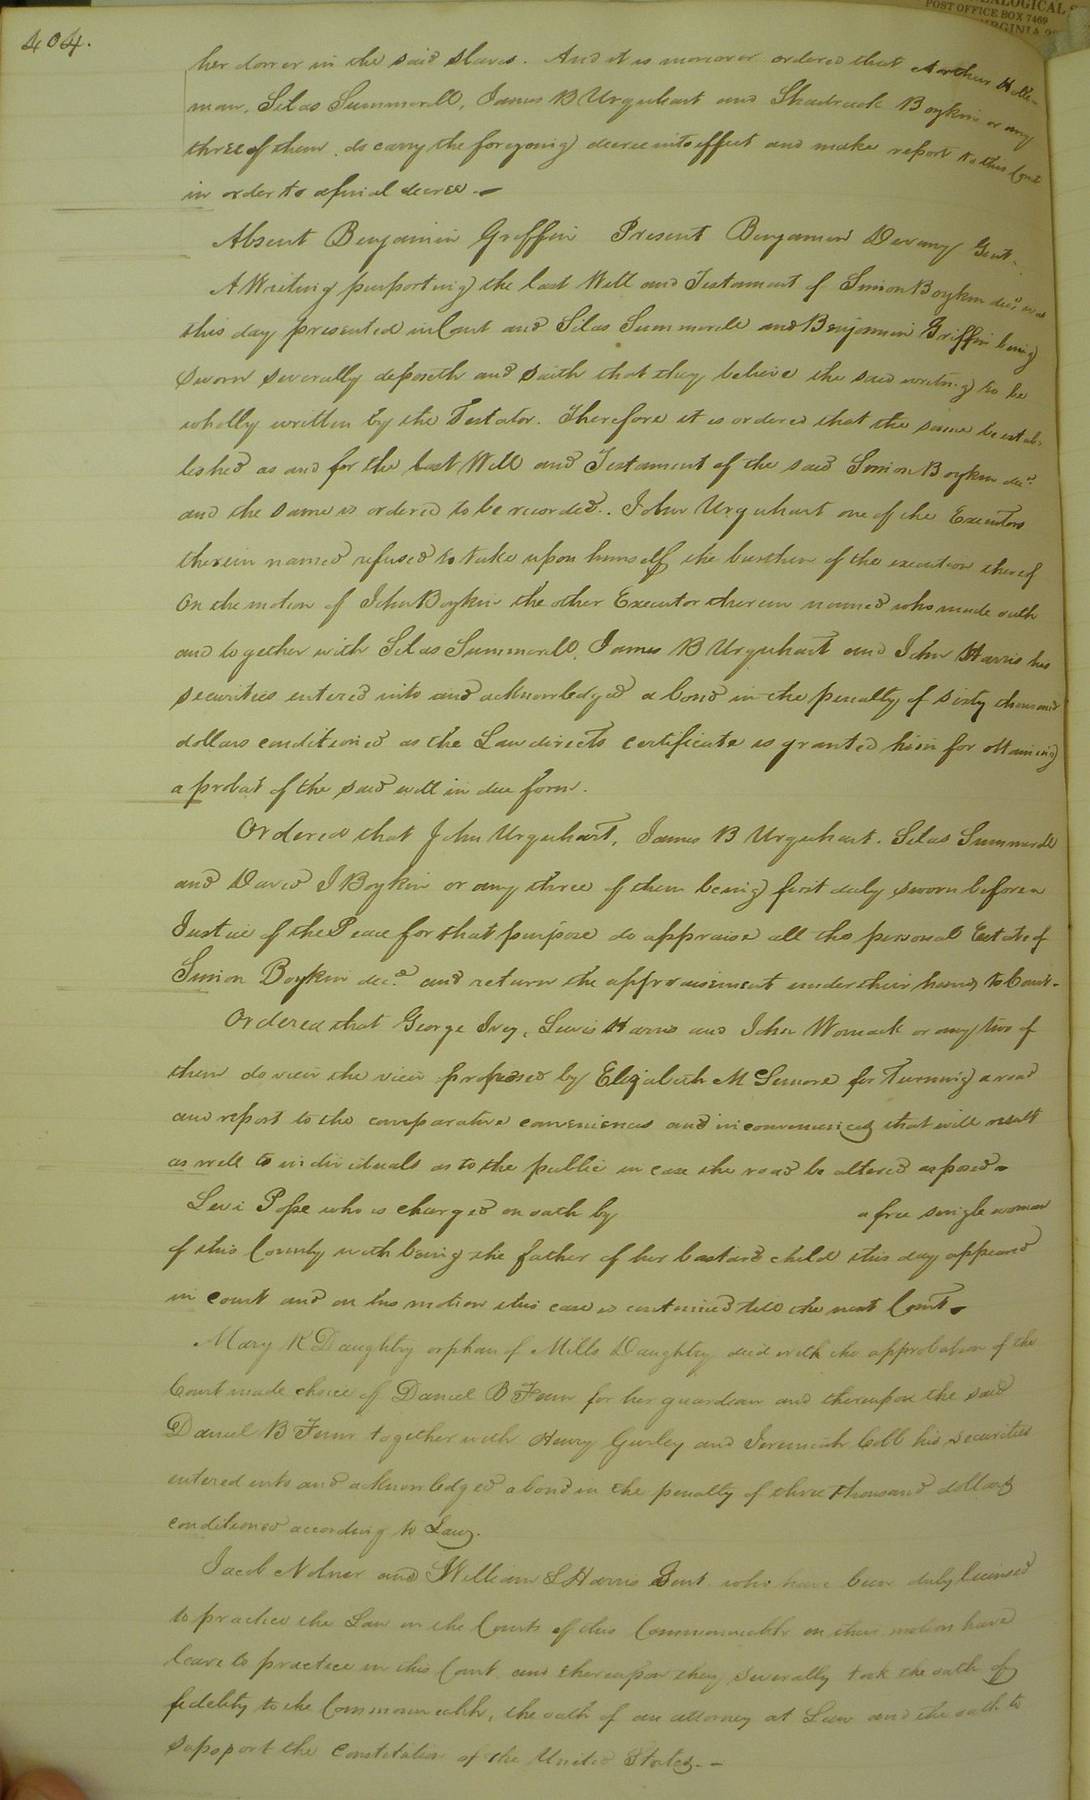 404.
ALOGICAL S
POST OFFICE BOX 7469
VIRGINIA
her dower in the said slaves. And it is moreover ordered that Arthur Holle-
man, Silas Summerell, James B Urquhart and Shadrack Boykin or any
three of them do carry the foregoing decree into effect and make report to this Court
in order to a final decree.
Absent Benjamin Griffin Present Benjamin Devany Gent.
A Writing purporting the last Will and Testament of Simon Boykin decd. was
this day presented in Court and Silas Summerell and Benjamin Griffin being
sworn severally deposeth and saith that they believe the said writing to be
wholly written by the Testator. Therefore it is ordered that the same be estab-
lished as and for the last Will and Testament of the said Simon Boykin decd.
and the same is ordered to be recorded. John Urquhart one of the Executors
therein named refused to take upon himself the burthen of the execution thereof
On the motion of John Boykin the other Executor therein named who made oath
and together with Silas Summerell, James B Urquhart and John Harris his
securities entered into and acknowledged a bond in the penalty of sixty thousand
dollars conditioned as the Law directs certificate is granted him for obtaining
a probat of the said will in due form.
Ordered that John Urquhart, James B Urquhart, Silas Summerell
and David J Boykin or any three of them being first duly sworn before a
Justice of the Peace for that purpose do appraise all the personal Estate of
Simon Boykin decd. and return the appraisement under their hands to Court.
Ordered that George Ivey, Lewis Harris and John Womack or any two of
them do view the view proposed by Elizabeth McLemore for Turning a road
and report to the comparative conveniences and inconveniences that will result
as well to individuals as to the public in case the road be altered as posed
Levi Pope who is charged on oath by a free single woman
of this County with being the father of her bastard child this day appeared
in court and on his motion this case is continued till the next Court.
Mary R Daughtry orphan of Mills Daughtry decd with the approbation of the
Court made choice of Daniel B Fenn for her guardian and thereupon the said
Daniel B Fenn together with Henry Gurley and Jeremiah Cobb his securities
entered into and acknowledged a bond in the penalty of three thousand dollars
conditioned according to Law.
Jacob and William S Harris Gent. who have been duly licensed
to practice the Law in the Courts of this Commonwealth on their motion have
leave to practice in this Court and thereupon they severally took the oath of
fidelity to the Commonwealth, the oath of an attorney at Law and the oath to
support the Constitution of the United States.